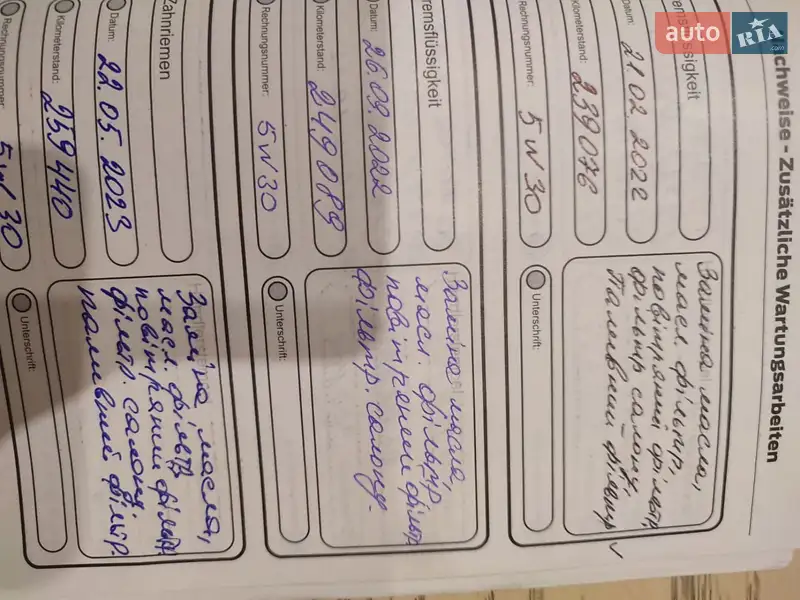 auto RIA
chweise - Zusätzliche Wartungsarbeiten
sigkeit
Datum: 21.02.2022
Kilometerstand: 239076
Rechnungsnummer: 5W30
Заміна масла,
масл. фільтр,
повітряний фільтр,
фільтр салону,
Паливний фільтр
Unterschrift:
remsflüssigkeit
Datum: 26.09.2022
Kilometerstand: 249089
Rechnungsnummer: 5W30
Заміна масла
масл. фільтр,
повітряний фільтр
фільтр. салону.
Unterschrift:
Zahnriemen
Datum: 22.05.2023
Kilometerstand: 259440
Rechnungsnummer: 5W30
Заміна масла,
масл. фільтр
повітряний фільтр
фільтр. салону,
паливний фільтр.
Unterschrift: